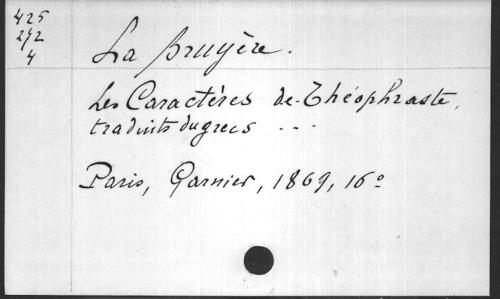 425
272
4
La Bruyère.
Les Caractères de Théophraste,
traduits du grecs ...
Paris, Garnier, 1869, 16º